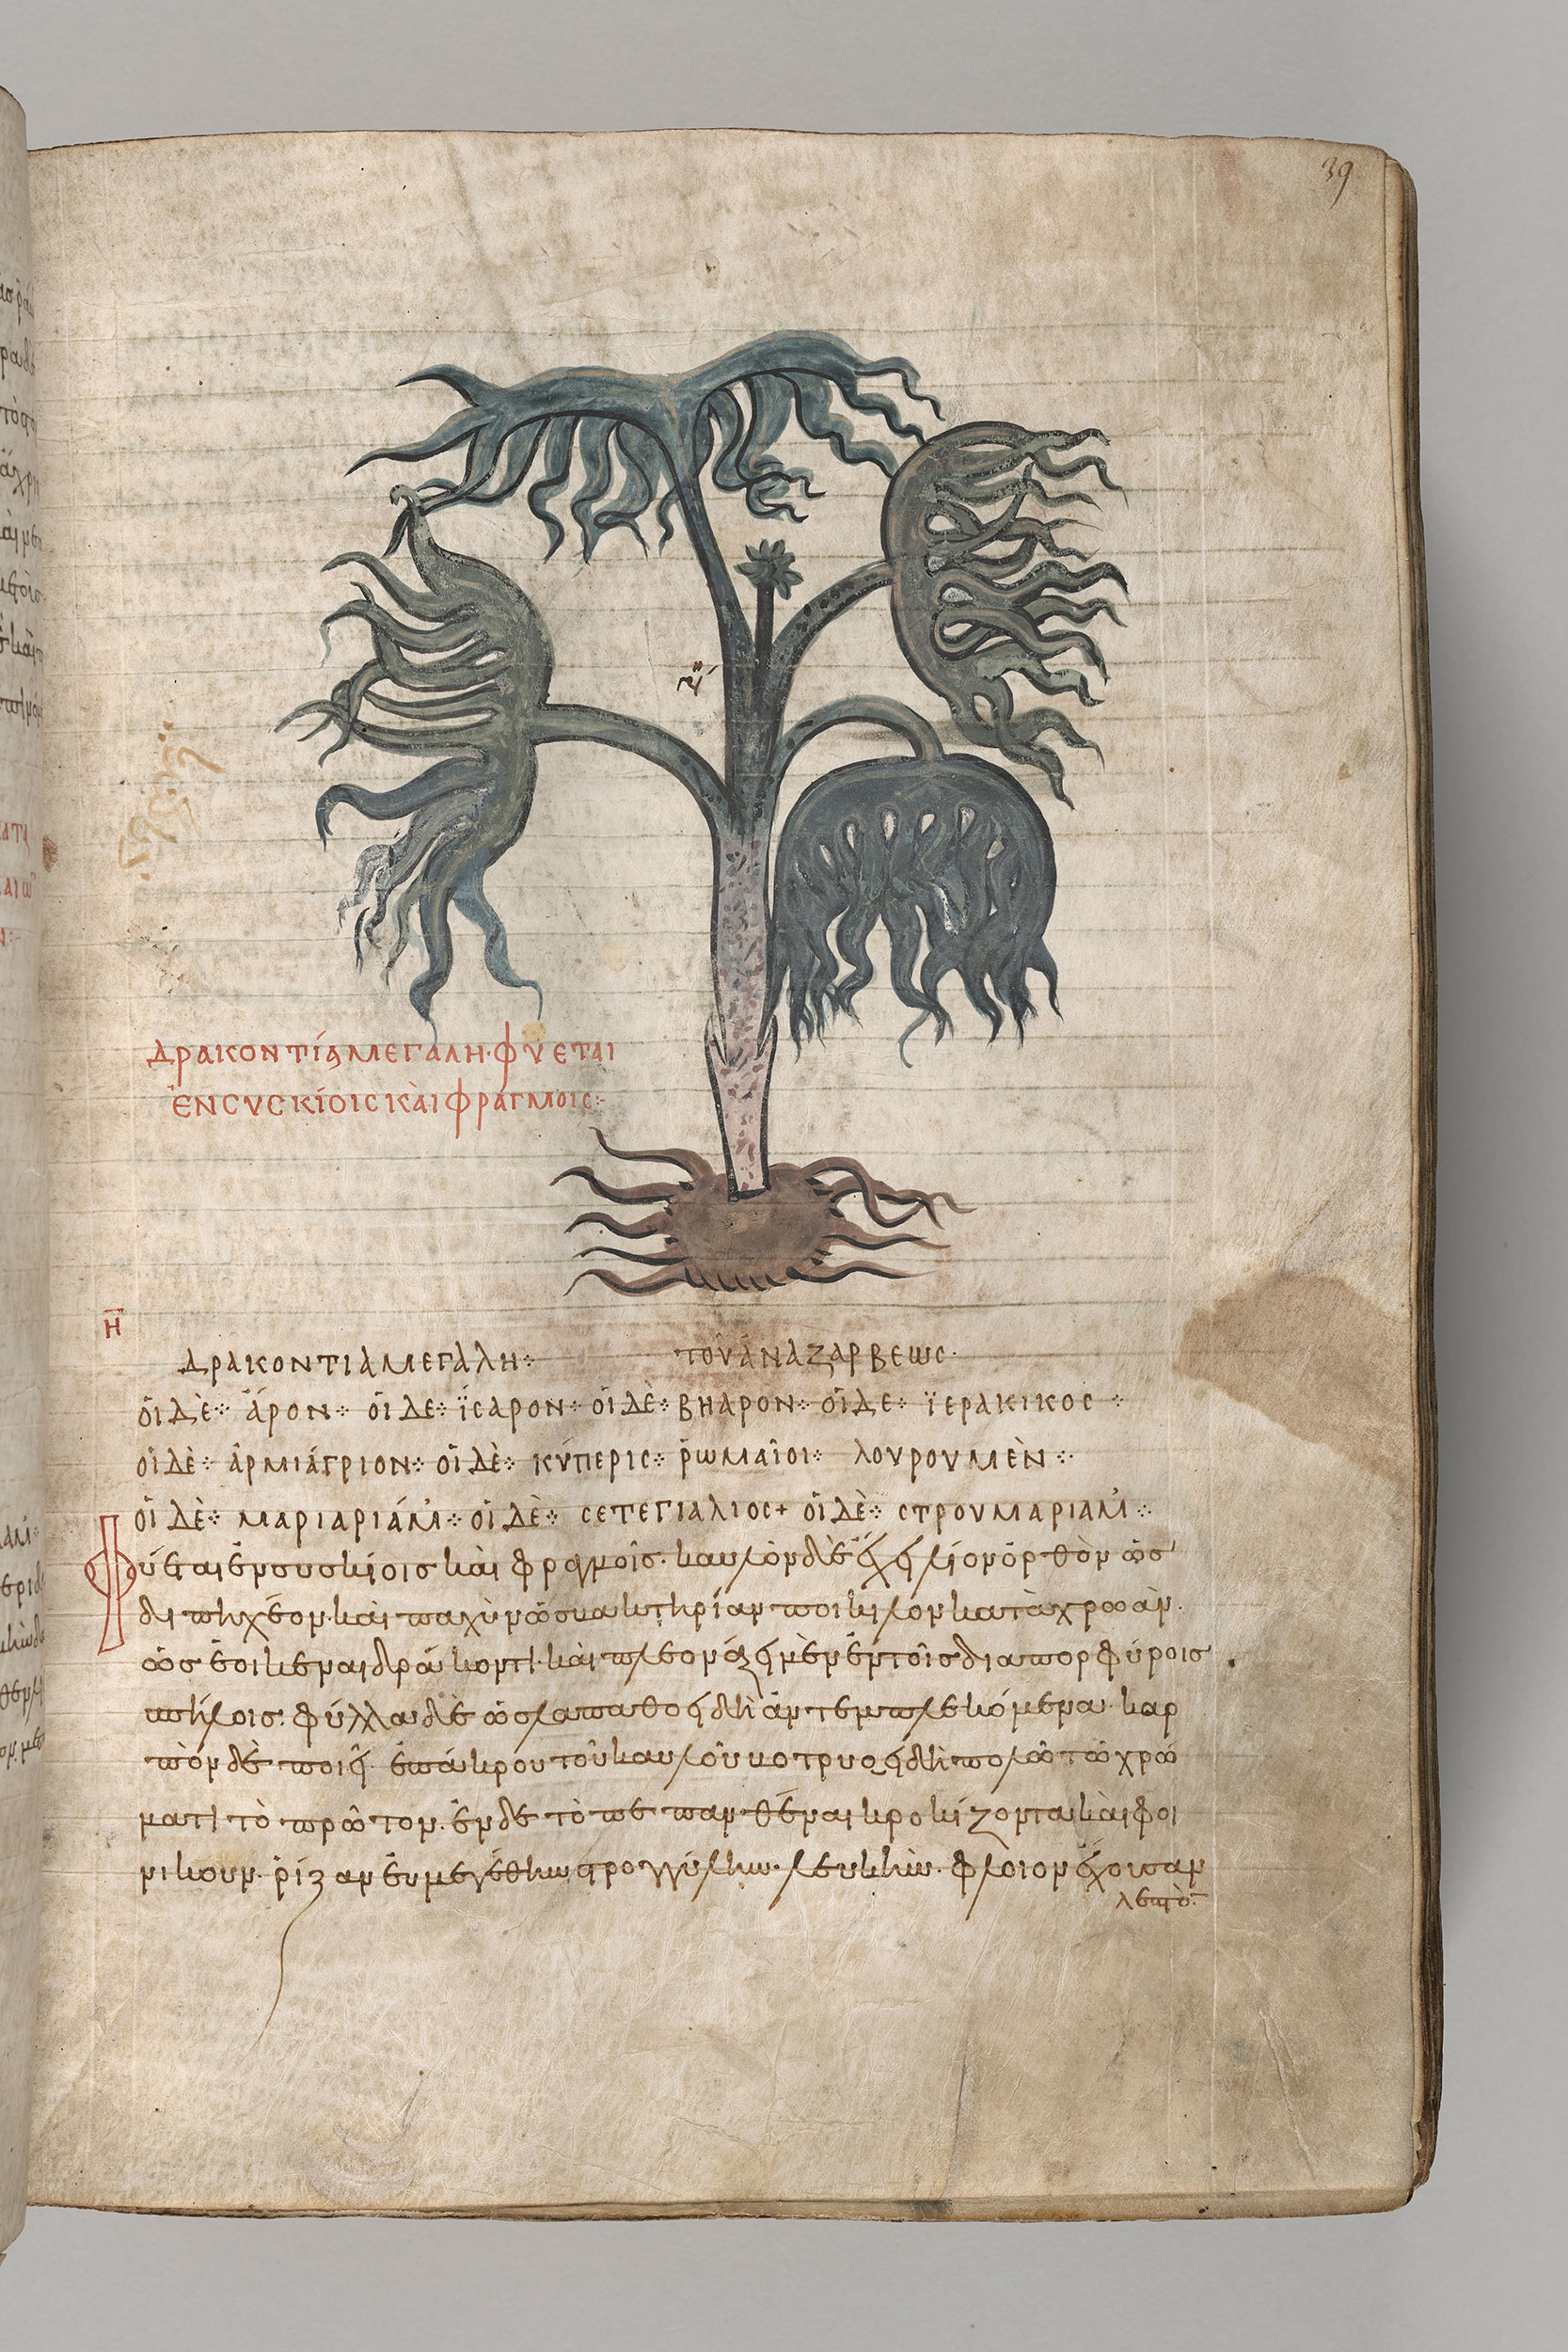 39
δρακοντία μεγάλη· φύεται
ἐν συσκίοις καὶ φραγμοῖς:-
η
δρακοντια μεγάλη: τοῦ ἀναζαρβεως·
οἱ δὲ: ἄρον: οἱ δε: ἴσαρον: οἱ δὲ: βηαρον: οἱ δε: ἱερακικος:
οἱ δὲ: ἀρμιάγριον: οἱ δὲ: κύπερις: ῥωμαῖοι: λουρουμὲν:
οἱ δὲ: μαριαριάμ: οἱ δὲ: σετεγιαλιος+ οἱ δὲ: στρουμαριαμ:
Φύεται ἐν συσκίοις καὶ φραγμοῖς· καυλὸν δὲ ἔχει λεῖον ὀρθὸν ὡς
διπηχέον· καὶ παχὺν ὡς βακτηρίαν ποικίλον κατὰ χρόαν·
ὡς ἐοικέναι δράκοντι· καὶ πλεονάζει μὲν ἐν τοῖς διαπορφύροις
σπίλοις· φύλλα δὲ ὡς λαπαθοειδῆ ἀντεμπλεκόμενα· καρ
πὸν δὲ ποιεῖ ἐπ' ἄκρου τοῦ καυλοῦ βοτρυοειδῆ πολιῶ τῶ χρώ
ματι τὸ πρῶτον· ἐν δὲ τὸ πεπανθέναι κροκίζοντα καὶ φοι
νικοῦν· ῥίζαν εὐμεγέθην στρογγύλην· λευκὴν· φλοιὸν ἔχουσαν
λεπτὸ